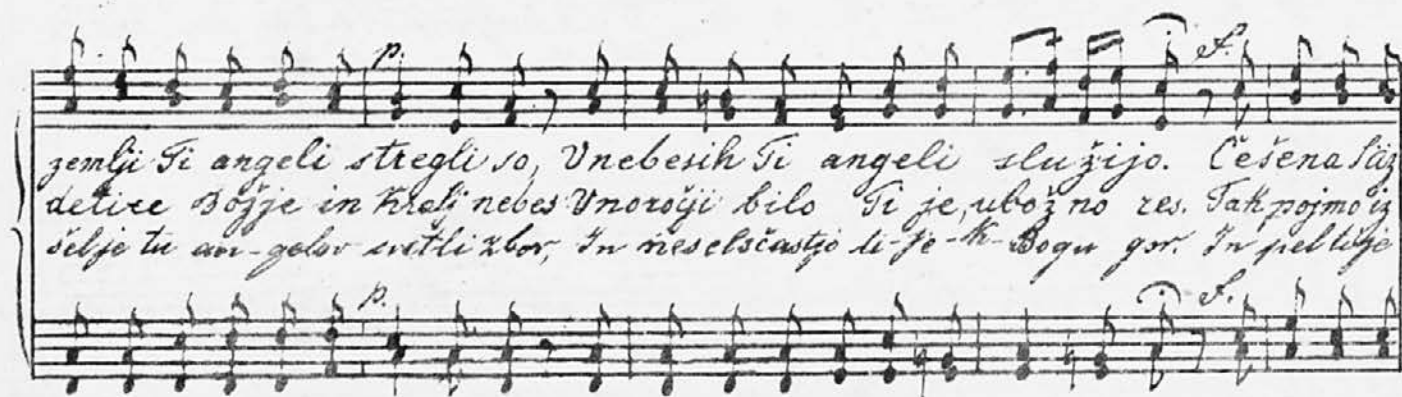 p. f.
zemlji Ti angeli stregli so, V nebesih Ti angeli služijo. Češena
detice Božje in Kralj nebes V noročji bilo Ti je, ubožno res. Tak pojmo iz
šel je tu an-gelov svitli zbor, In nesel s častjo te je k Bogu gor. In pel ti je
p. f.